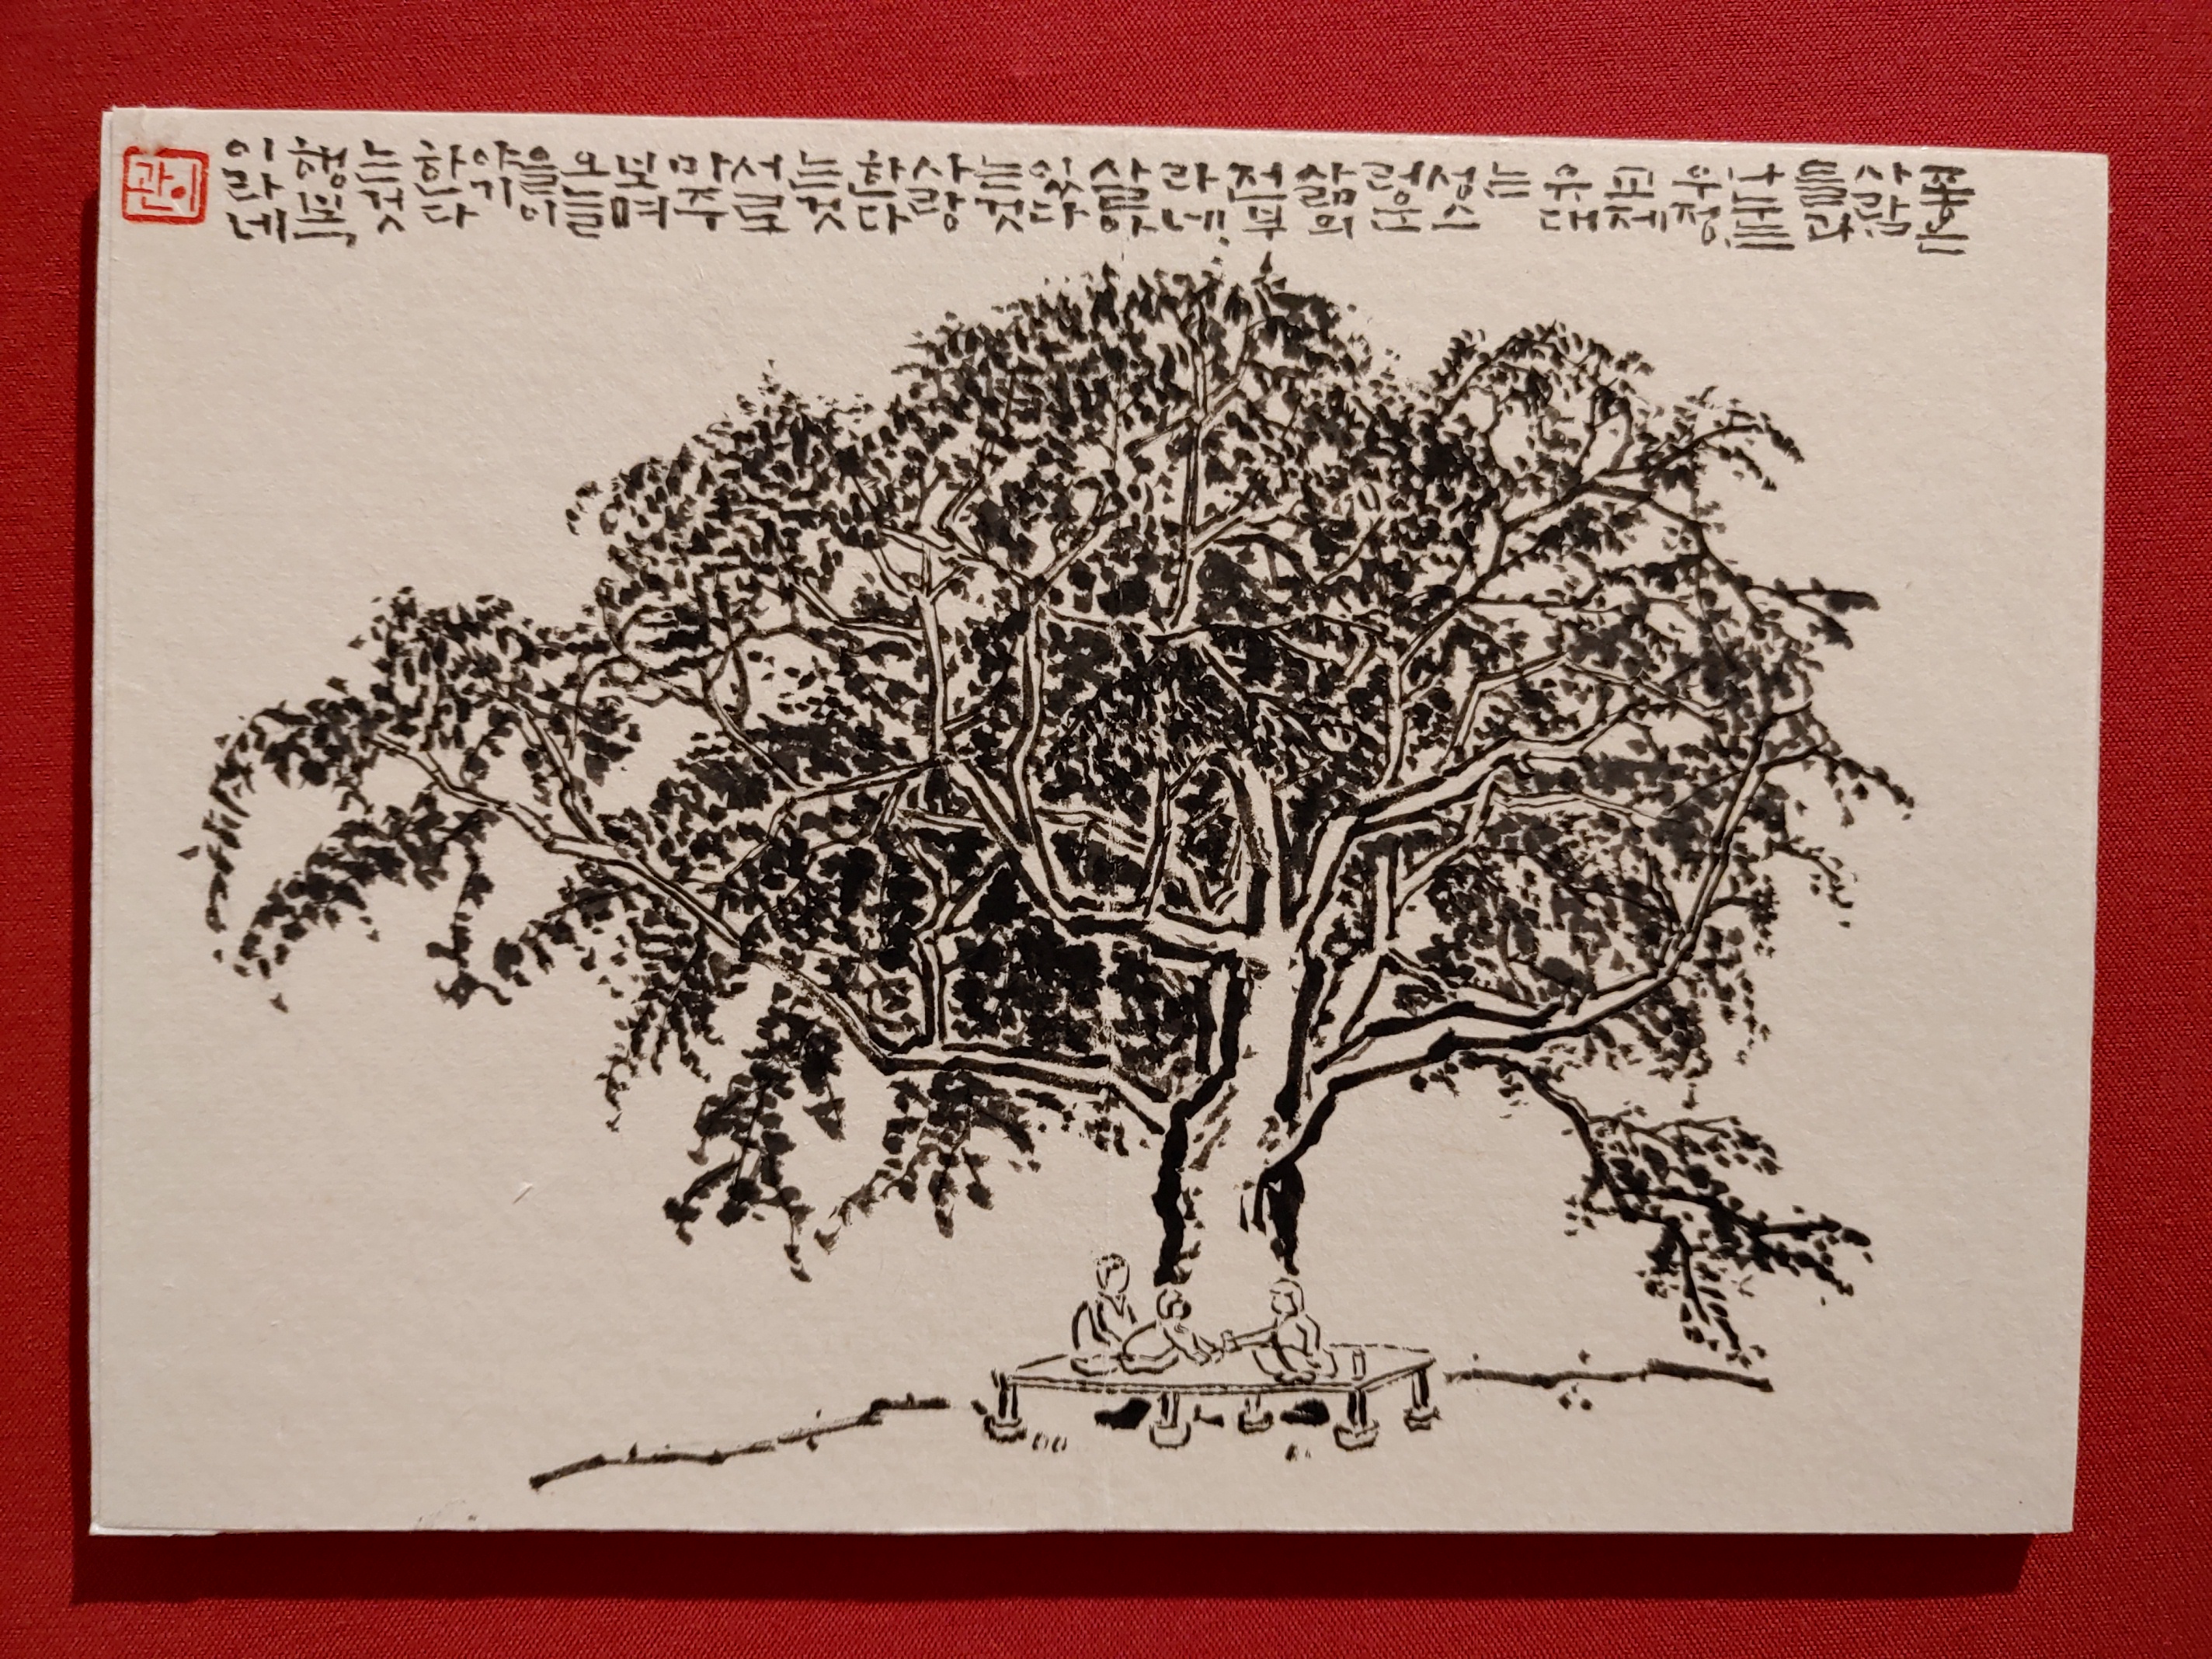 좋은
사람
들과
나누는
우정,
교제
유대
는
성스
러운
삶의
전부
라네!
살아
있다
는것
사랑
한다
는것
서로
마주
보며
오늘
을이
야기
한다
는것
행복,
이라네